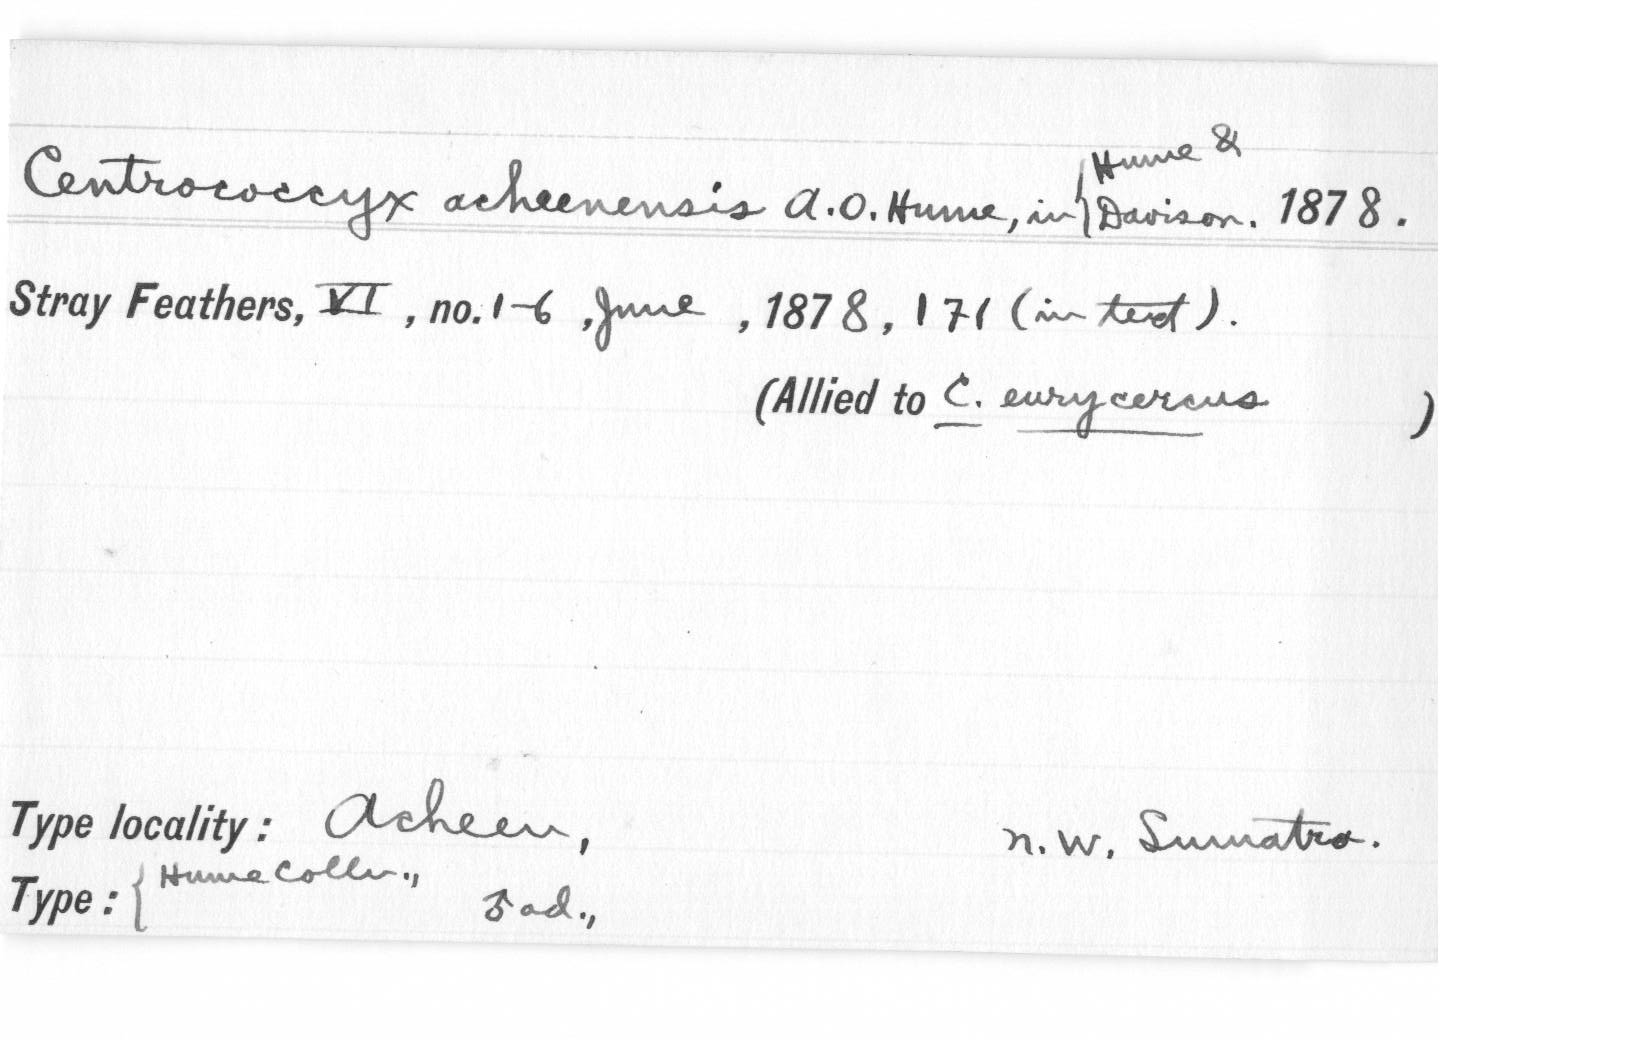 Centrococcyx acheenensis A.O. Hume, in {Hume & Davison. 1878.
Stray Feathers, VI, no. 1-6, June, 1878, 171 (in text).
(Allied to C. eurycercus)
Type locality: Acheen, N.W. Sumatra.
Type: {Hume Colln., ♂ ad.,